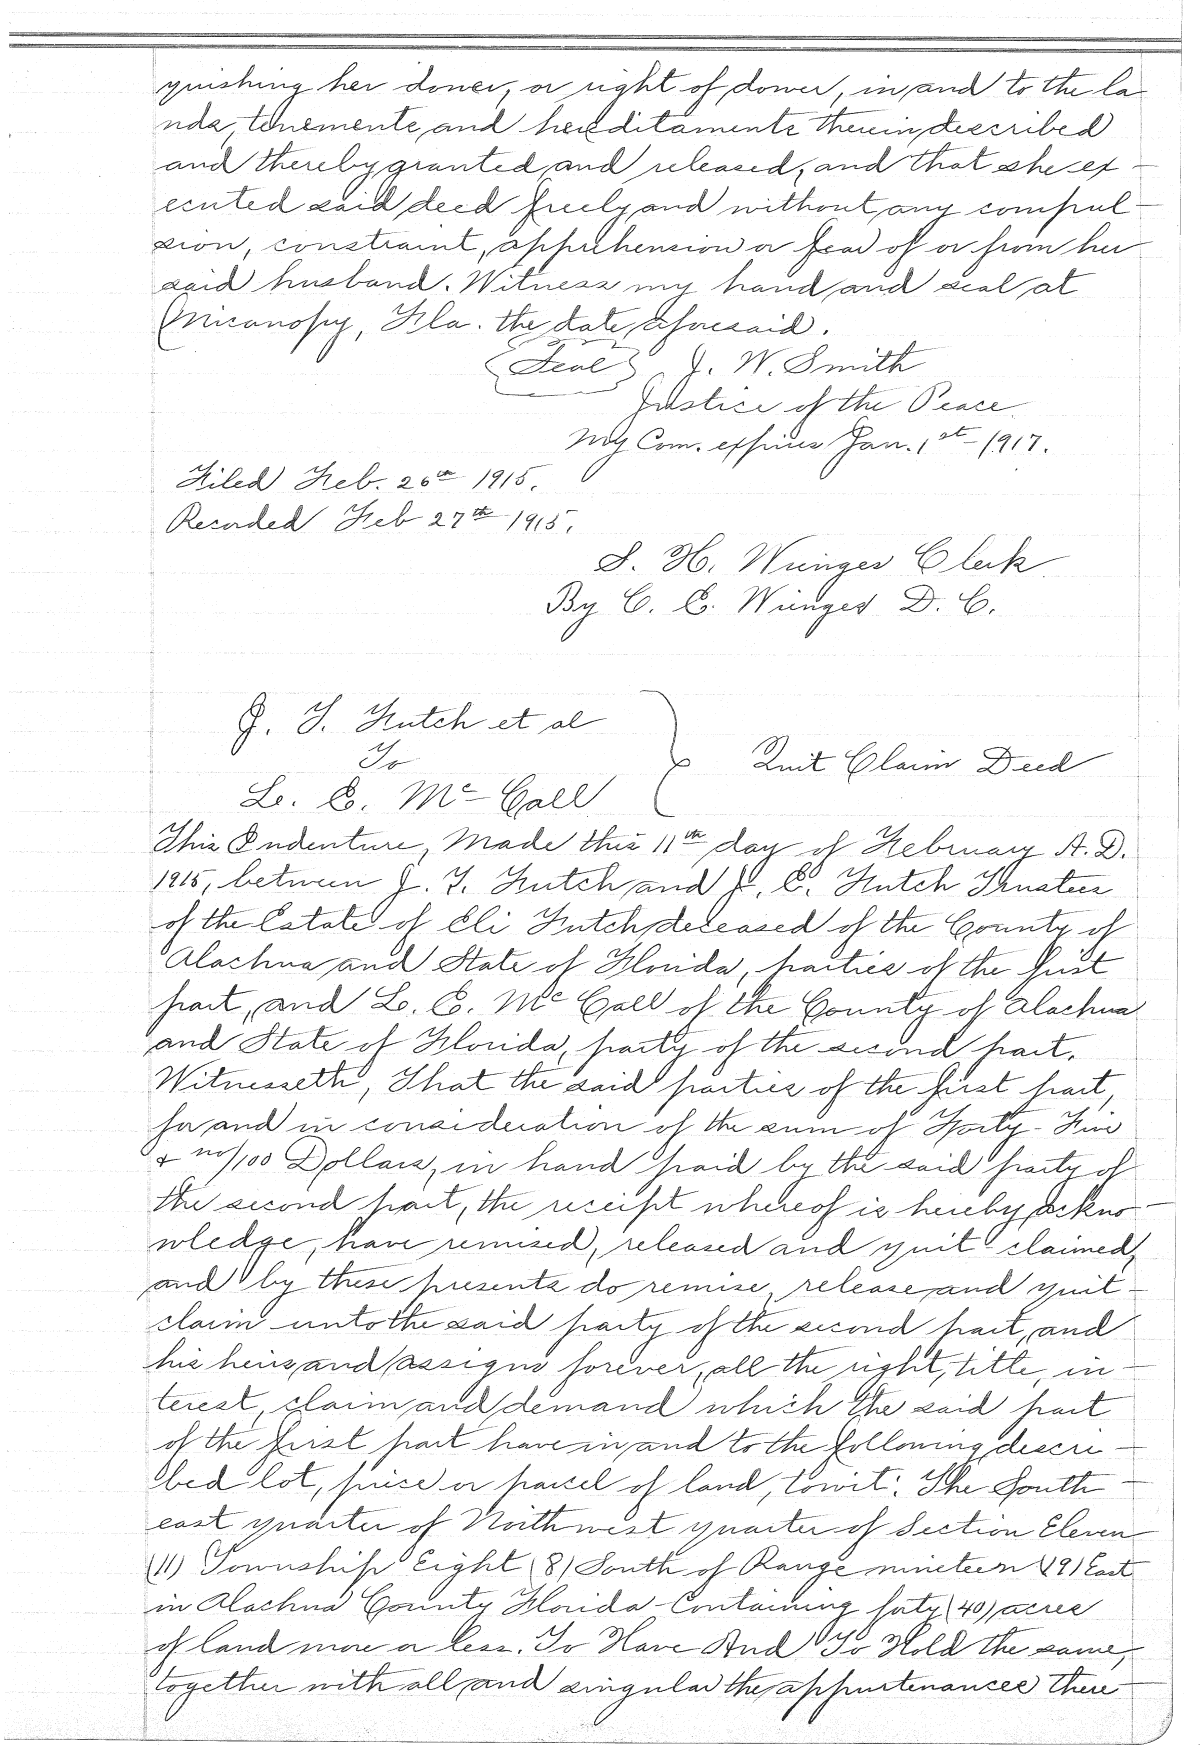 quishing her dower, or right of dower, in and to the la
nds, tenements, and hereditaments therein described
and thereby granted and released, and that she ex-
ecuted said deed freely and without any compul-
sion, constraint, apprehension or fear of or from her
said husband. Witness my hand and seal at
Micanopy, Fla. the date aforesaid.
{Seal} J. W. Smith
Justice of the Peace.
My Com. expires Jan. 1st - 1917.
Filed Feb. 26th 1915.
Recorded Feb 27th 1915.
S. H. Wienges Clerk.
By C. E. Wienges D. C.
J. F. Futch et al
To
L. E. Mc Call
Quit Claim Deed
This Indenture, Made this 11th day of February A. D.
1915, between J. F. Futch and J. E. Futch Trustees
of the Estate of Eli Futch, deceased of the County of
Alachua and State of Florida, parties of the first
part, and L. E. Mc Call of the County of Alachua
and State of Florida, party of the second part.
Witnesseth, That the said parties of the first part,
for and in consideration of the sum of Forty-Five
& no/100 Dollars, in hand paid by the said party of
the second part, the receipt whereof is hereby ackno-
wledge, have remised, released and quit-claimed,
and by these presents do remise, release and quit-
claim unto the said party of the second part, and
his heirs and assigns forever, all the right, title, in-
terest, claim and demand which the said part
of the first part have in and to the following descri-
bed lot, piece or parcel of land, towit: The South-
east quarter of Northwest quarter of Section Eleven
(11) Township Eight (8) South of Range nineteen (19) East
in Alachua County Florida - Containing forty (40) acres
of land more or less. To Have And To Hold the same,
together with all and singular the appurtenances there-